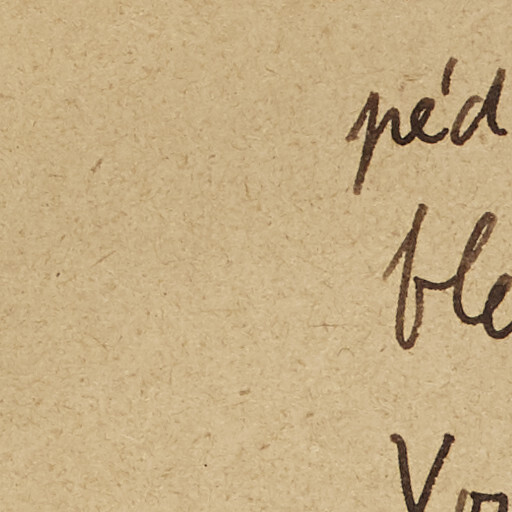 péd
ble
Vo